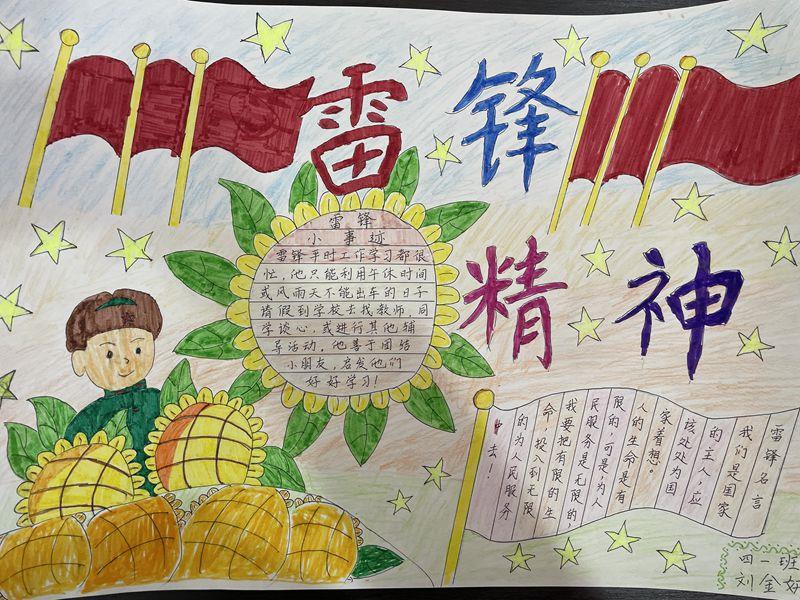 雷锋
精神
雷锋
小事迹
雷锋平时工作学习都很
忙，他只能利用午休时间
或风雨天不能出车的日子
请假到学校去找教师，同
学谈心，或进行其他辅
导活动。他善于团结
小朋友，启发他们
好好学习！
雷锋名言
我们是国家
的主人，应
该处处为国
家着想。
人的生命是有
限的，可是，为人
民服务是无限的，
我要把有限的生
命，投入到无限
的为人民服务
中去！
四一班
刘金妤